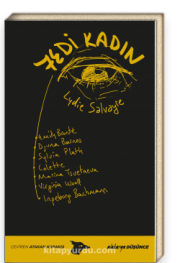 7EDİ KADIN
Lydie Salvayre
Emily Brontë
Djuna Barnes
Sylvia Plath
Colette
Marina Tsvetaeva
Virginia Woolf
Ingeborg Bachmann
kitapyurdu.com
ÇEVİREN
DÜŞÜNCE